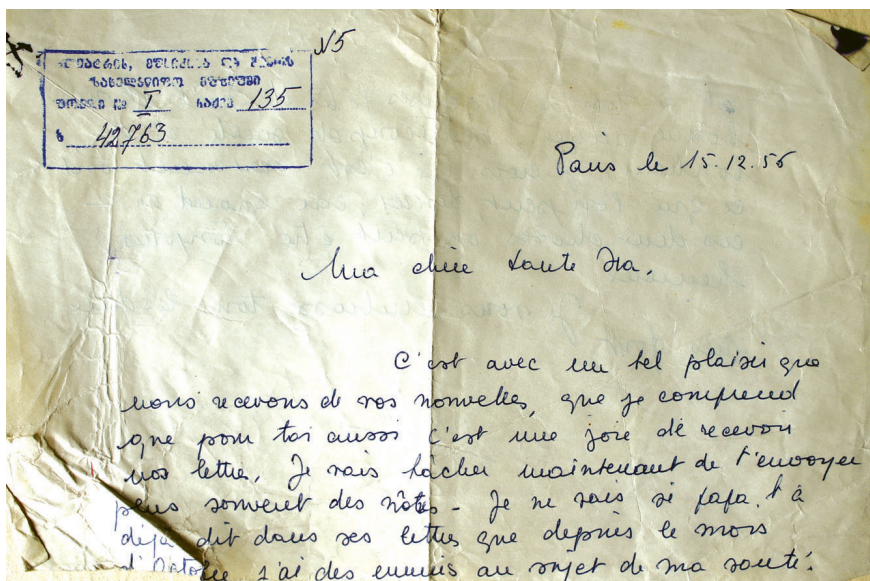 N5
თეატრის, მუსიკისა და კინოს
სახელმწიფო მუზეუმი
ფონდი № I საქმე 135
42763
Paris le 15.12.56
Ma chère tante Ira,
C'est avec un tel plaisir que
nous recevons de vos nouvelles, que je comprend
que pour toi aussi c'est une joie de recevoir
nos lettre. Je vais tâcher maintenant de t'envoyer
plus souvent des nôtres - Je ne sais si papa t'à
déjà dit dans ses lettre que depuis le mois
d'Octobre j'ai des ennuis au sujet de ma santé.